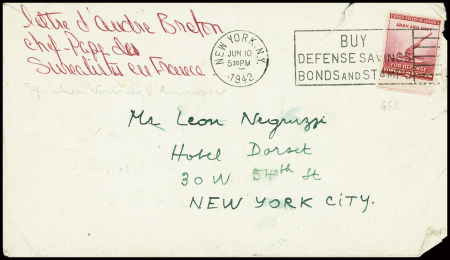 lettre d'andré Breton
chef-Pape des
Surréalistes en France
NEW YORK, N.Y.
JUN 10
530PM
1942
BUY
DEFENSE SAVINGS
BONDS AND STAMPS
ARMY AND NAVY
FOR DEFENSE
452
Mr Leon Negruzzi
Hotel Dorset
30 W 54th St
NEW YORK CITY.